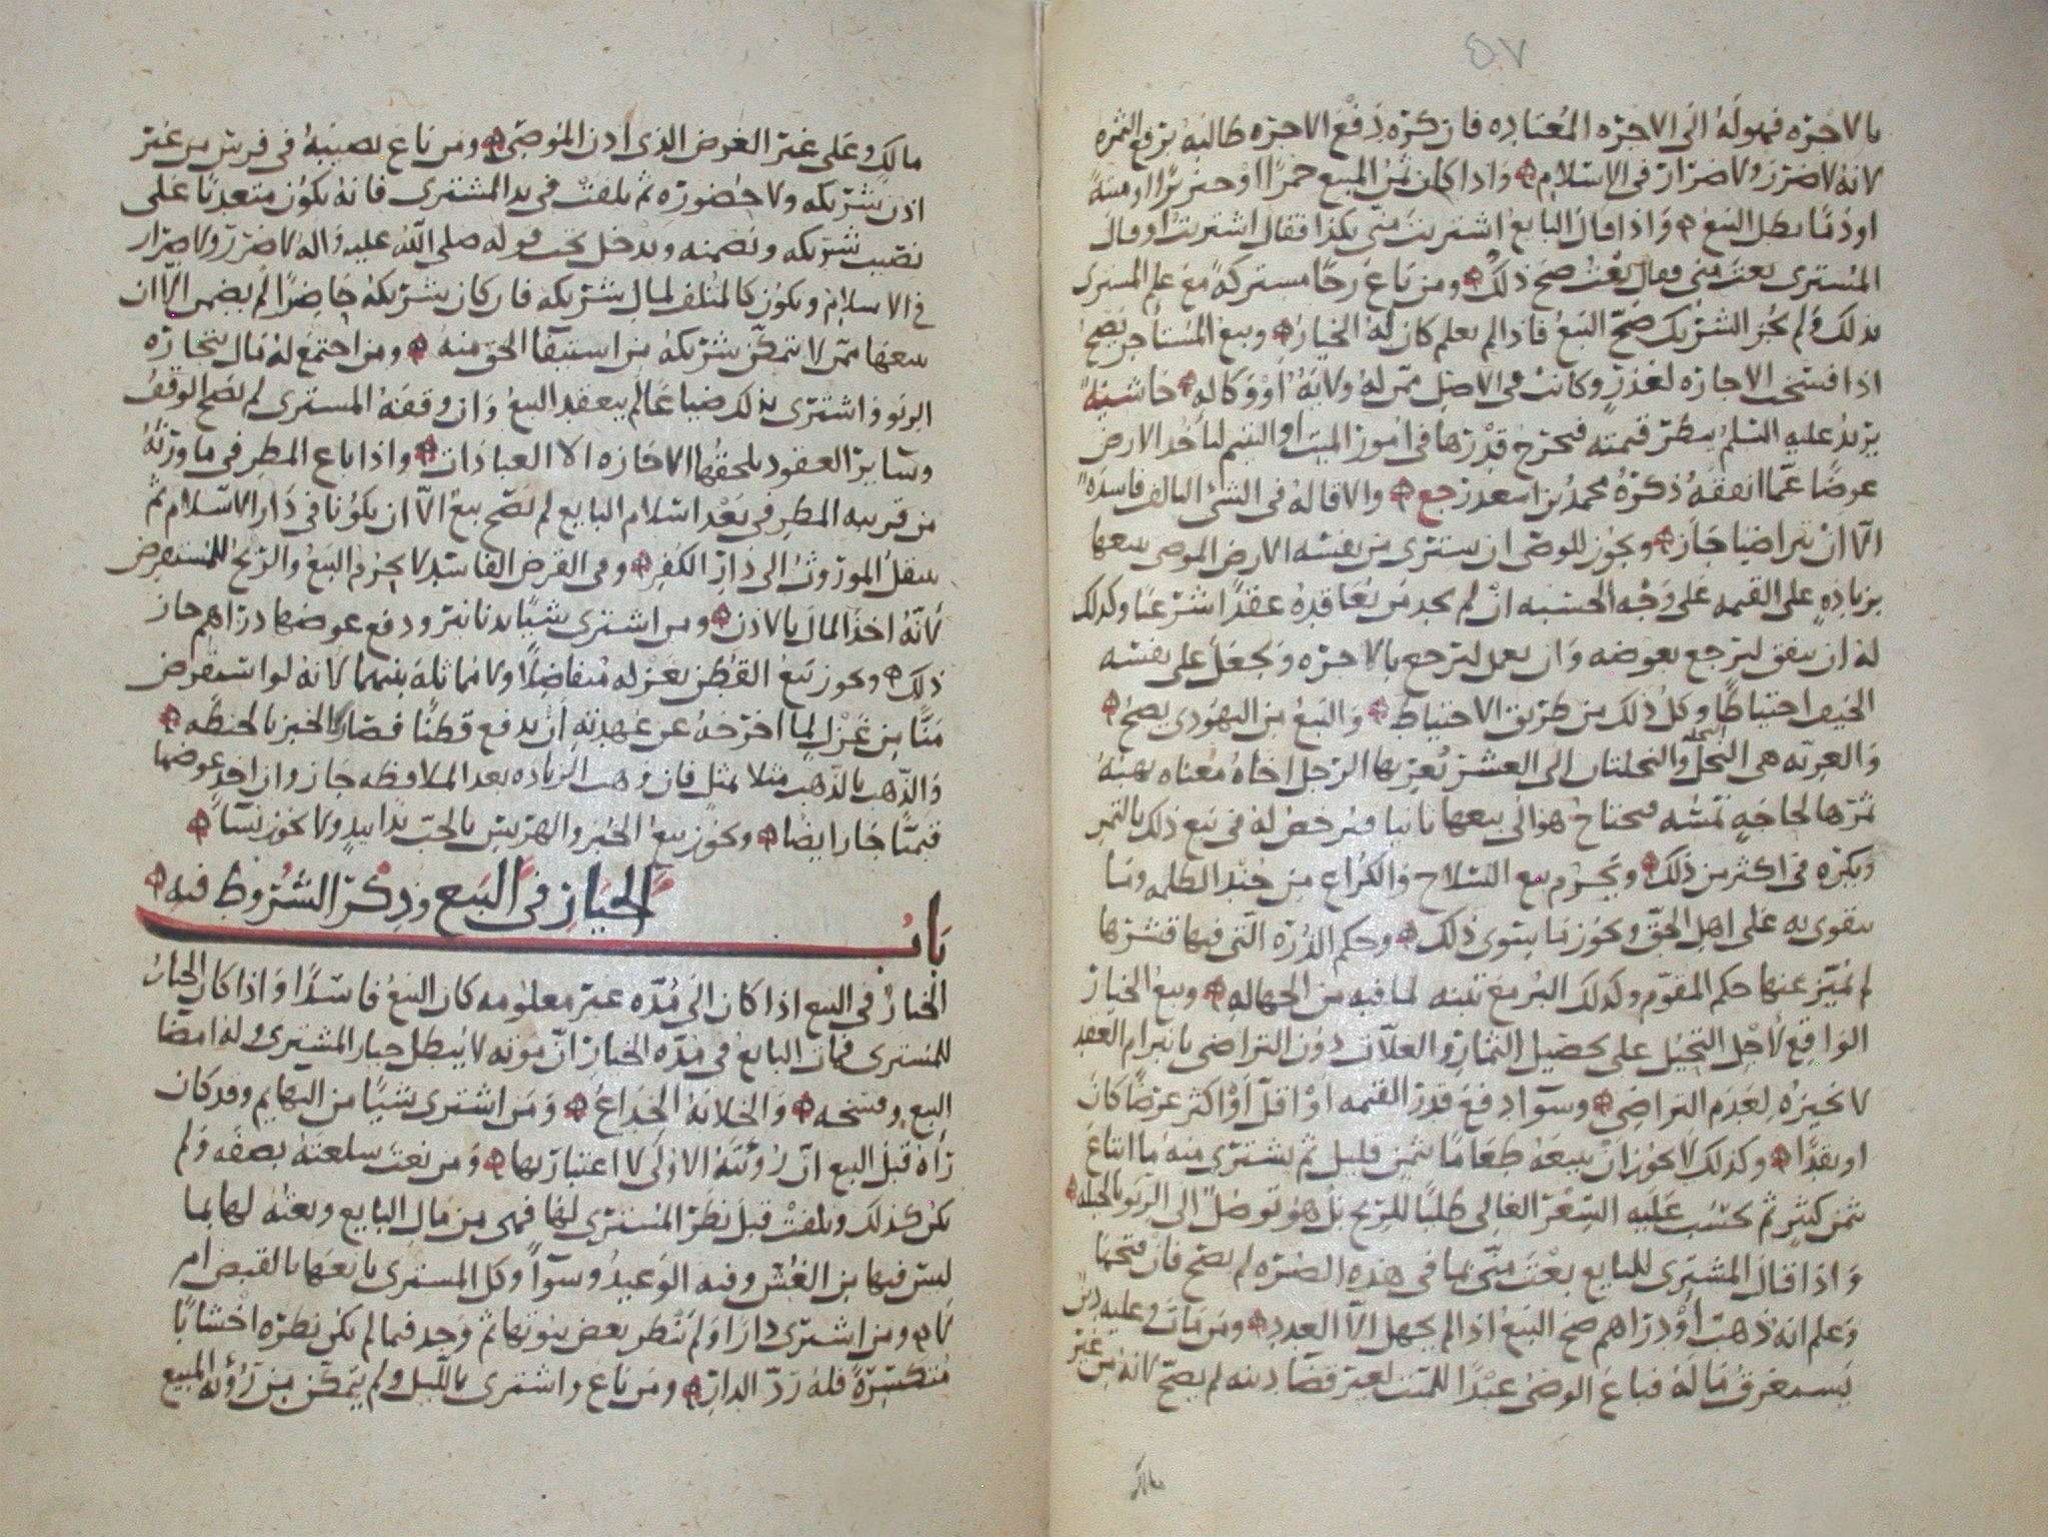 ٥٧
بالاجره فهو له الى الاجره المعتاده فان كره دفع الاجره طالبه برفع الثمره
لانه لا ضرر ولا ضرار في الاسلام واذا كان ثمن المبيع خمرا او خنزيرا او ميتة
او دما بطل البيع واذا قال البايع اشتريت مني بكذا فقال اشتريت او قال
المشتري بعت مني فقال بعت صح ذلك ومن باع رحا مشتركة مع علم المشتري
بذلك ولم يجز الشريك صح البيع فاذا لم يعلم كان له الخيار وبيع المستأجر يصح
اذا فسخت الاجاره لعذر وكانت في الاصل ممن له ولاية او وكاله حاشية
يزيد عليه السلم ينظر قيمته فيخرج قدرها في امور الميت او اليتيم لياخذ الارض
عوضا عما انفقه ذكره محمد بن اسعد رجع والاقالة في الشيء التالف فاسدة
الا ان يتراضيا جاز ويجوز للوصي ان يشتري من نفسه الارض الموصى ببيعها
بزيادة على القيمه على وجه الحسبه ان لم يجد من يعاقده عقدا شرعيا وكذلك
له ان ينفق ليرجع بعوضه وان يعمل ليرجع بالاجره ويجعل على نفسه
الحيف احتياطا وكل ذلك من طريق الاحتياط والبيع من اليهودي يصح
والعريه هي النخلة والنخلتان الى العشر يعريها الرجل اخاه معناه يهبه
ثمرها لحاجة تمسه فيحتاج هو الى بيعها ثانيا فيرخص له في بيع ذلك بالتمر
ويكره في اكثر من ذلك ويحرم بيع السلاح والكراع من جند الظلمه وما
يتقوى به على اهل الحق ويجوز ما يستوى ذلك وحكم الذره التي فيها قشرها
لم تميز عنها حكم المقوم وكذلك البر مع تبنه لما فيه من الجهاله وبيع الخيار
الواقع لاجل التحيل على تحصيل الثمار والغلات دون التراضي بانبرام العقد
لا نجيزه لعدم التراضي وسوا دفع قدر القيمه او اقل او اكثر عرضا كان
او نقدا وكذلك لا يجوز ان يبيعه طعاما بثمن قليل ثم يشتري منه ما ابتاع
بثمن كثير ثم يحسب عليه السعر الغالي طلبا للربح بل هو توصل الى الربو بالحيله
واذا قال المشتري للبايع بعت مني بما في هذه الصره لم يصح فان فتحها
وعلم انه ذهب او دراهم صح البيع اذا لم يجهل الا العدد ومن مات وعليه دين
يستغرق ماله فباع الوصي عبدا للميت لغير قضا دينه لم يصح لانه من غير
مالك
مالك وعلى غير الغرض الذي اذن الموصي ومن باع نصيبه في فرس من غير
اذن شريكه ولا حضوره ثم تلفت في يد المشتري فانه يكون متعديا على
نصيب شريكه ونضمنه ويدخل تحت قوله صلى الله عليه واله لا ضرر ولا ضرار
في الاسلام ويكون كالمتلف لمال شريكه فان كان شريكه حاضرا لم يضمن الا ان
يبيعها ممن لا يتمكن شريكه من استيفا الحق منه ومن اجتمع له مال بتجارة
الربو فاشترى بذلك ضياعا لم ينعقد البيع وان وقفه المشتري لم يصح الوقف
وساير العقود تلحقها الاجازه الا العبادات واذا باع المطرفي ما ورثه
من قريبه المطرفي بعد اسلام البايع لم يصح بيع الا ان يكونا في دار الاسلام ثم
ينقل الموروث الى دار الكفر وفي القرض الفاسد لا يحرم البيع والربح للمستقرض
لانه اخذ المال بالاذن ومن اشترى شيئا بدنانير ودفع عوضها دراهم جاز
ذلك ويجوز بيع القطن بغزله متفاضلا ولا مماثلة بينهما لانه لو استقرض
منا من غزل لما اخرجه عن عهدته ان يدفع قطنا فصار كالخبز بالحنطه
والذهب بالذهب مثلا بمثل فان وهب الزياده بعد الملافظه جاز وان اخذ عوضها
قيمتا جاز ايضا ويجوز بيع الخبز والهريس بالحب يدا بيد ولا يجوز نسآ
باب الخيار في البيع وذكر الشروط فيه
الخيار في البيع اذا كان الى مدة غير معلومه كان البيع فاسدا واذا كان الخيار
للمشتري فمات البايع في مدة الخيار ان موته لا يبطل خيار المشتري وله امضا
البيع وفسخه والخلابة الخداع ومن اشترى شيئا من البهايم وقد كان
رآه قبل البيع ان رؤيته الاولى لا اعتبار بها ومن نعت سلعته بصفه ولم
تكن كذلك وتلفت قبل نظر المشتري لها فهي من مال البايع ونعته لها بما
ليس فيها من الغش وفيه الوعيد وسوآ وكل المشتري بايعها بالقبض ام
لا ومن اشترى دارا ولم ينظر بعض بيوتها ثم وجد فيما لم يكن نظره اخشابا
متكسرة فله رد الدار ومن باع واشترى بالليل ولم يتمكن من رؤية المبيع